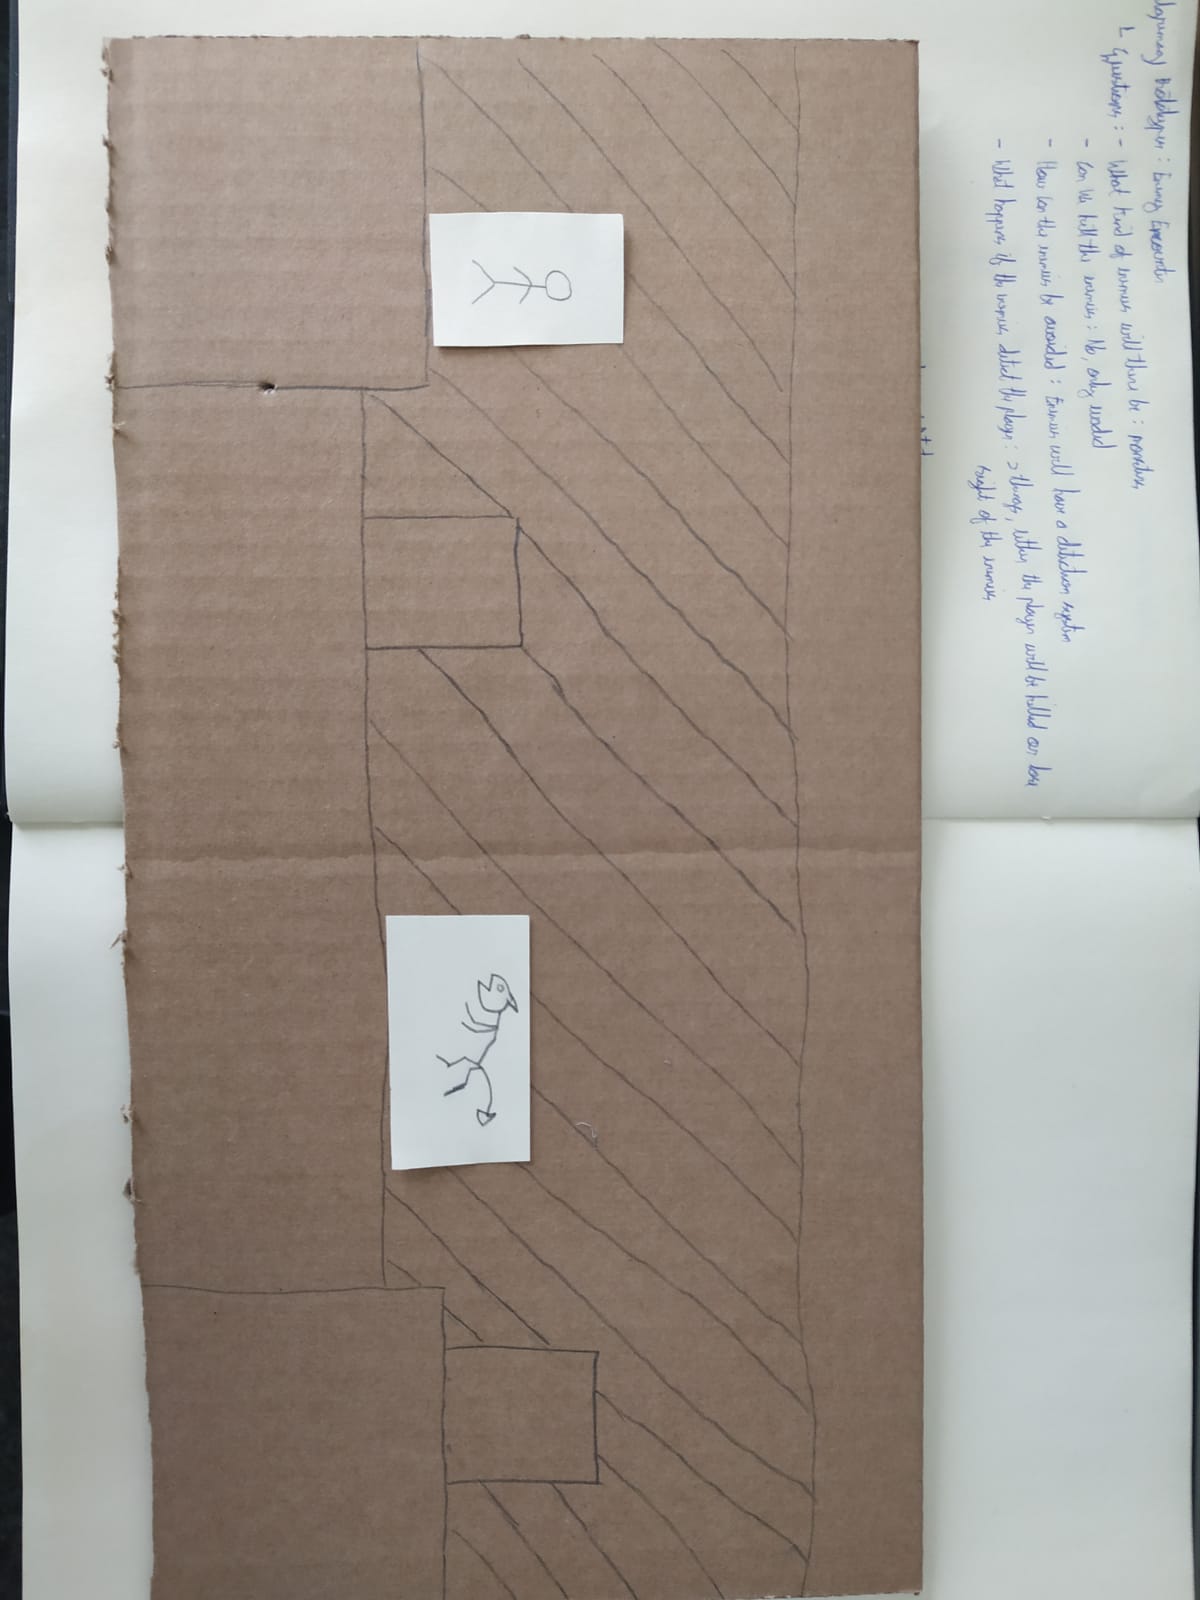 Prototypes : Enemy Encounter
Questions : - What kind of enemies will there be : monsters
- Can we kill the enemies : No, only evaded
- How can the enemies be avoided : Enemies will have a detection system
- What happens if the enemies detect the player : 2 things, either the player will be killed or lose
sight of the enemies